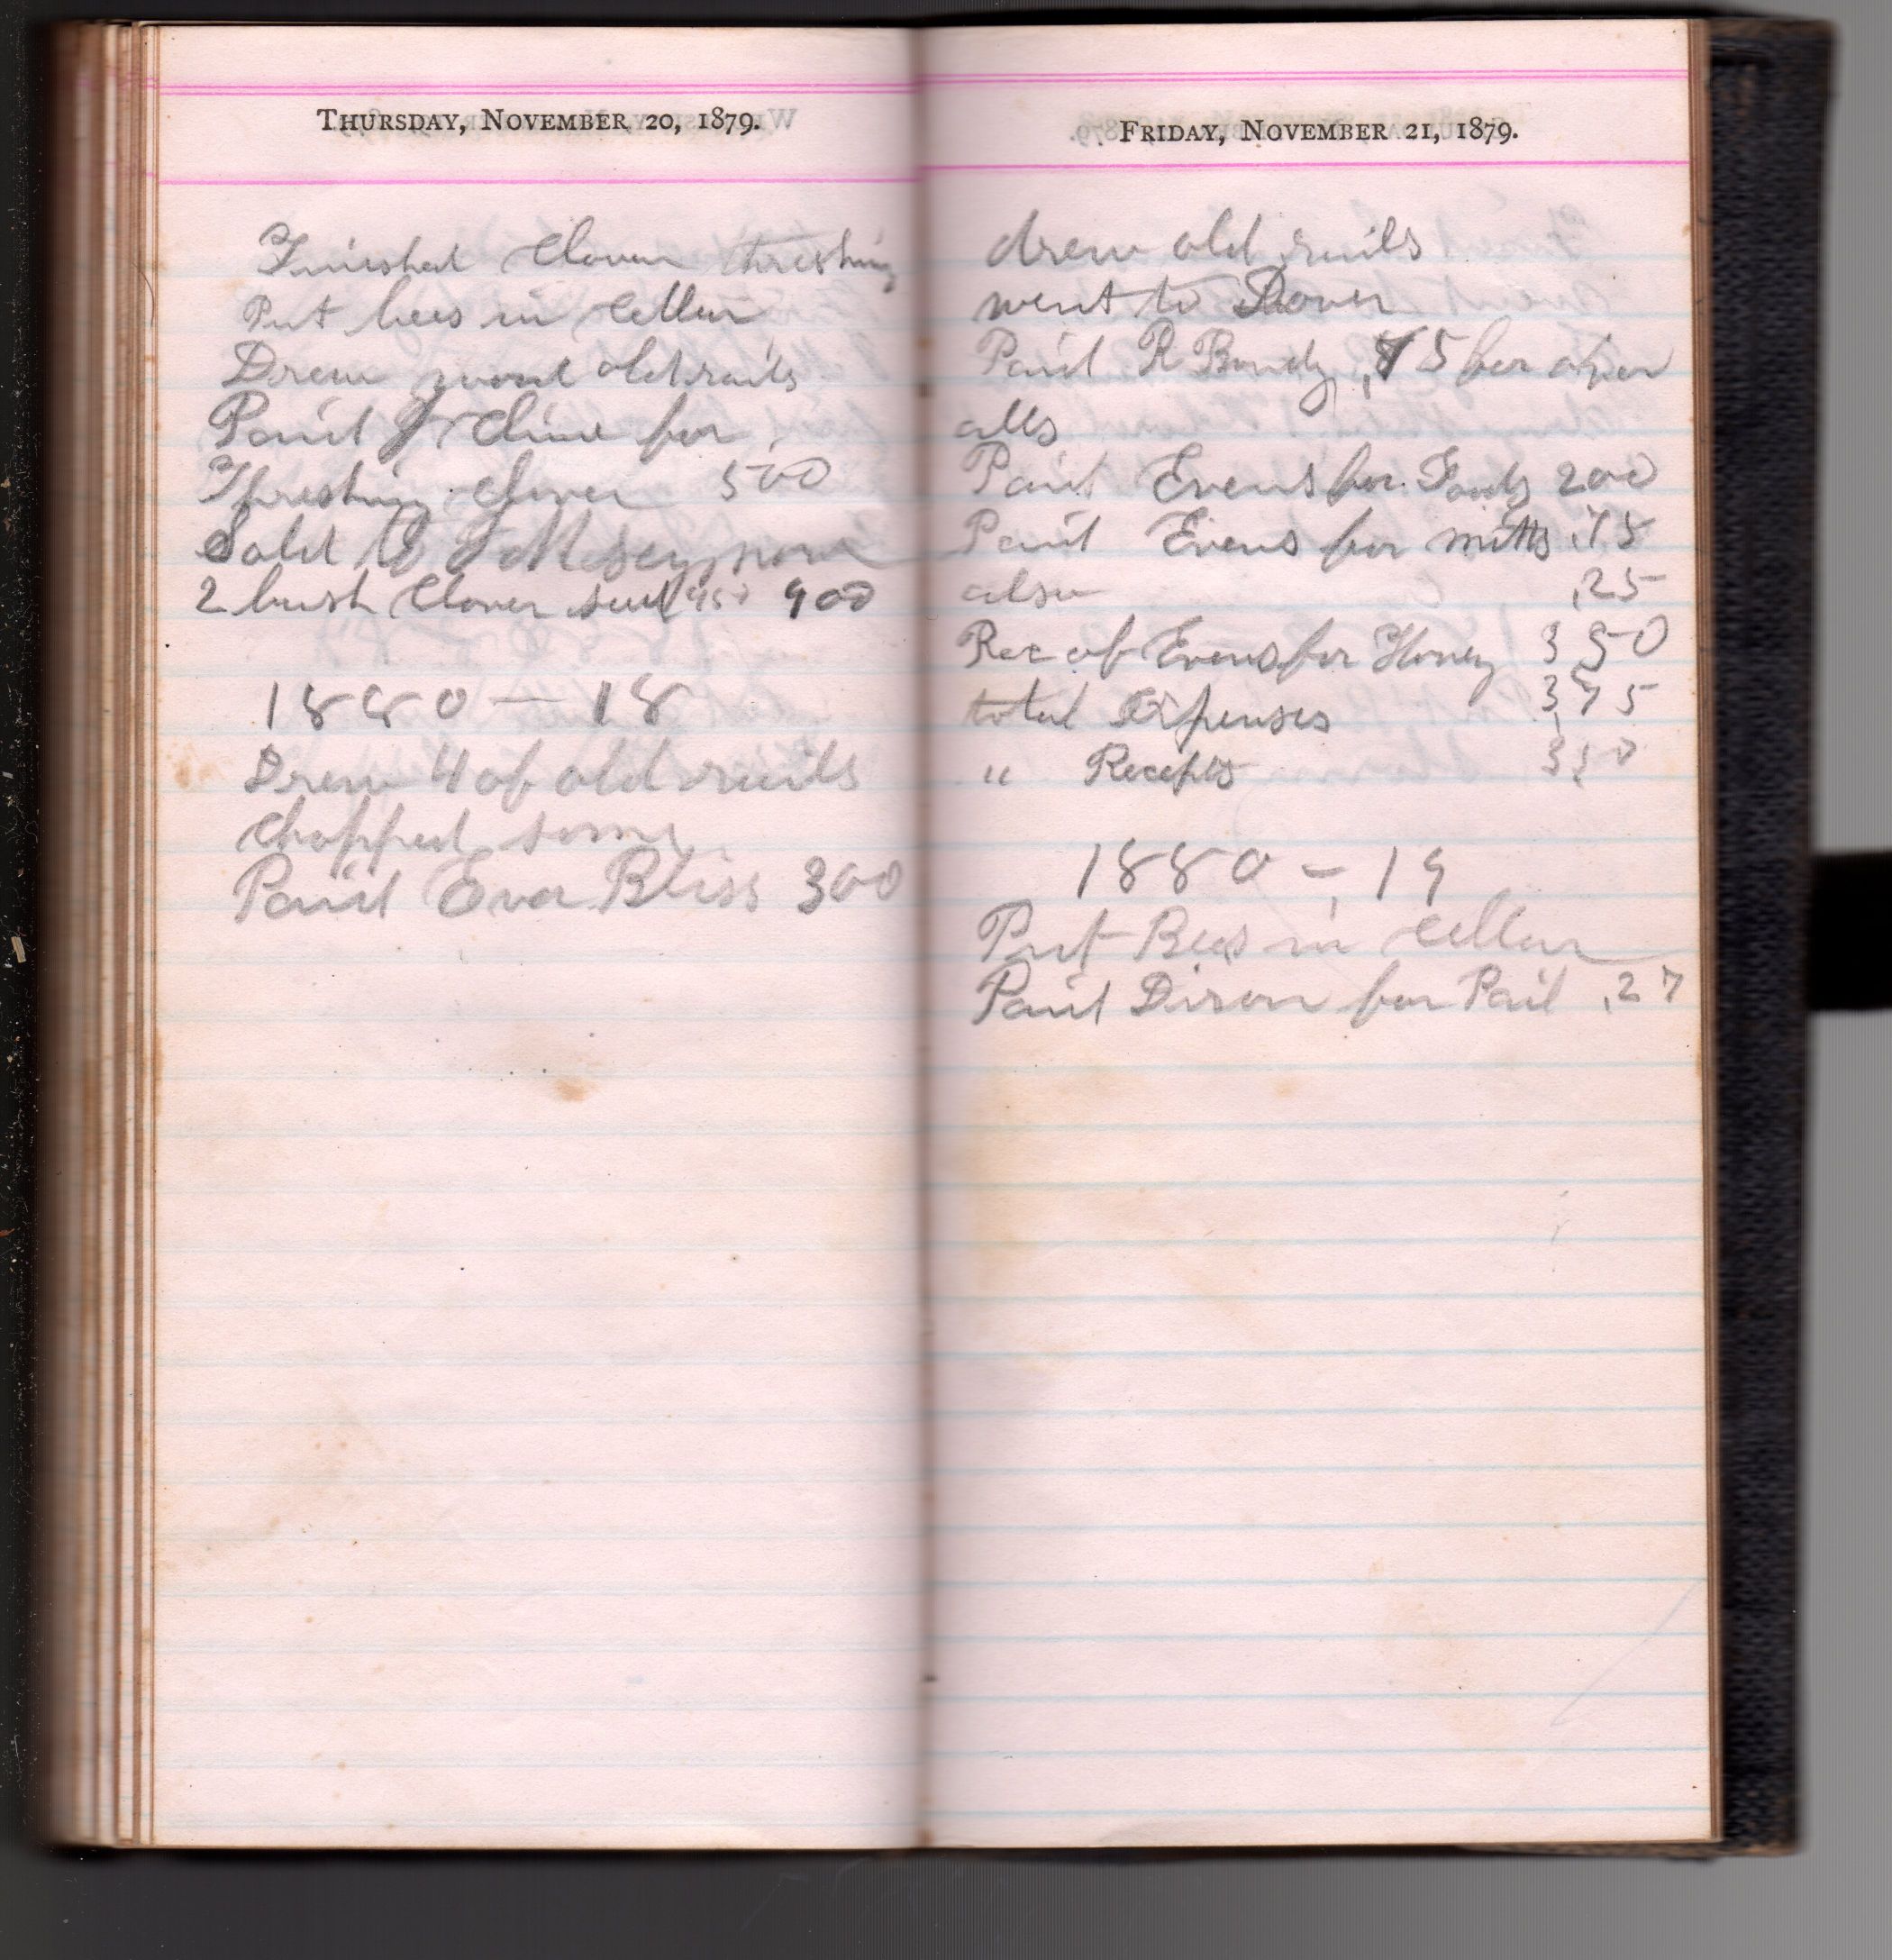 THURSDAY, NOVEMBER 20, 1879.
Finished Clover threshing
Put bees in Cellar
Drew wood old rails
Paid J Cline for
Threshing Clover 500
Sold
2 bush Clover seed 450 900
1880 — 18
Drew 4 of old rails
Chopped some
Paid Eva Bliss 300
FRIDAY, NOVEMBER 21, 1879.
drew old rails
went to Dover
Paid R Bondy ,75 for over
alls
Paid Evens for Goods 200
Paid Evens for mitts ,75
also ,25
Rec of Evens for Honey 350
total Expenses 375
" Recepts 350
1880 – 19
Put Bees in Cellar
Paid Dixon for Pail ,27